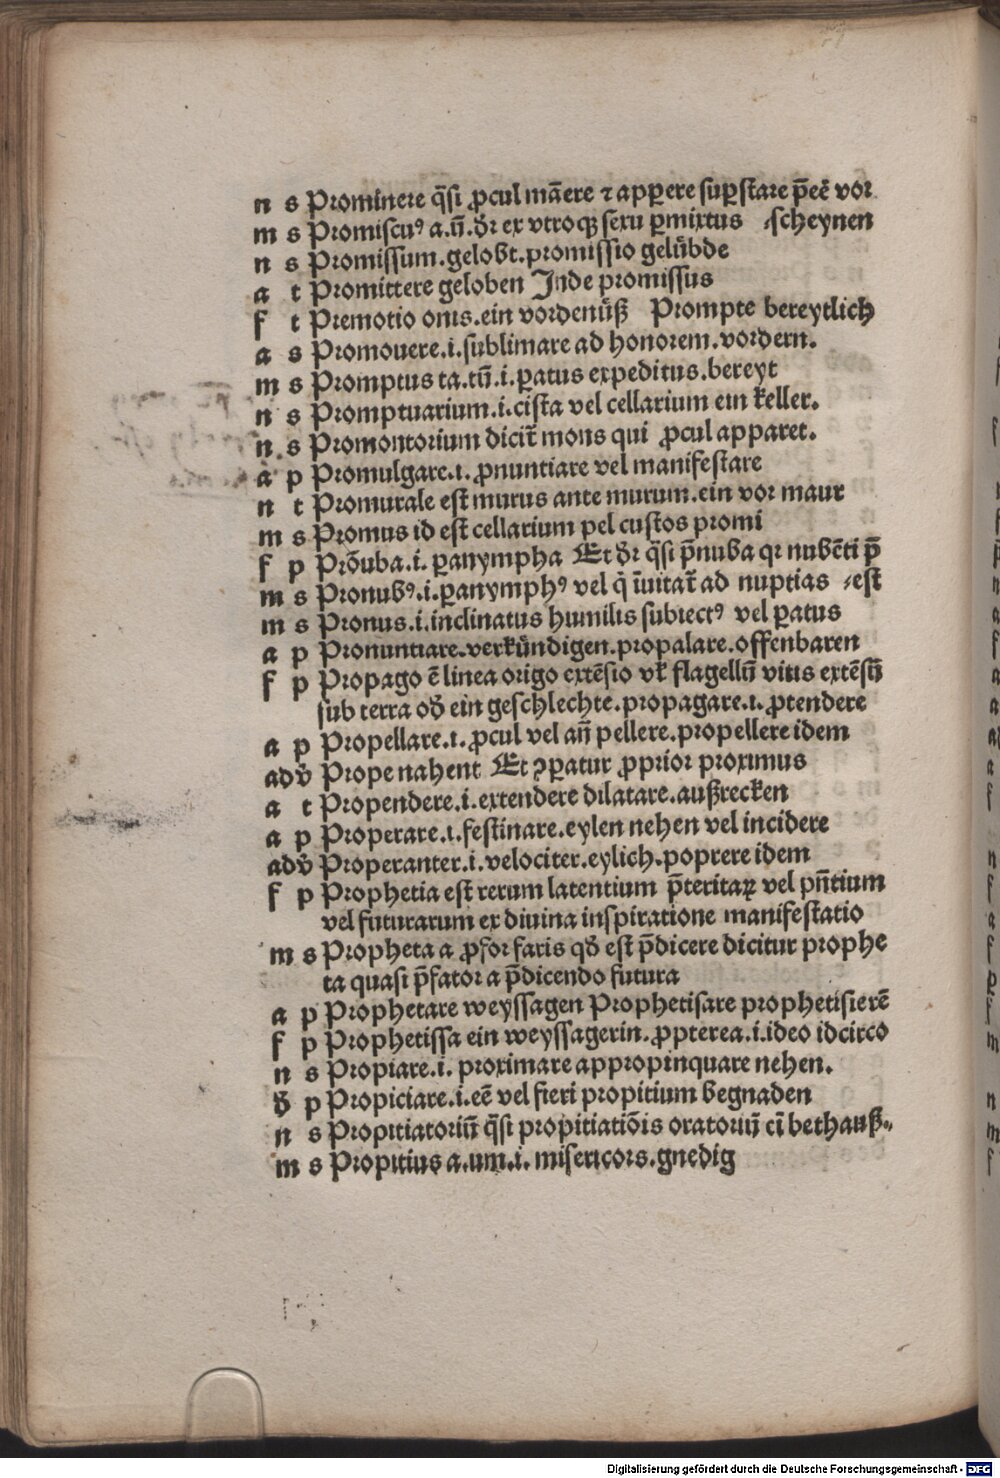 n s Prominere q̄si ꝓcul manēre ⁊ apꝑere suꝑstare p̄eē vor
m s Promiscuꝰ a.ū.dr̄ ex vtroqꝫ sexu ꝑmixtus ⸗scheynen
n s Promissum.gelobt.promissio gelübde
a t Promittere geloben Inde promissus
f t Premotio onis.ein vordenüß Prompte bereytlich
a s Promouere.i.sublimare ad honorem.vordern.
m s Promptus ta.tū.i.ꝑatus expeditus.bereyt
n s Promptuarium.i.cista vel cellarium ein keller.
n s Promontorium dicit᷑ mons qui ꝓcul apparet.
a p Promulgare.i.ꝓnuntiare vel manifestare
n t Promurale est murus ante murum.ein vor maur
m s Promus id est cellarium pel custos promi
f p Prōuba.i.ꝑanympha Et dr̄ q̄si p̄nuba qr nubēti p̄
m s Pronubꝰ.i.ꝑanymphꝰ vel q̇ īuitat᷑ ad nuptias ⸗est
m s Pronus.i.inclinatus humilis subiectꝰ vel ꝑatus
a p Pronuntiare.verkündigen.propalare.offenbaren
f p Propago ē linea origo extēsio vł flagellū vitis extēsū
sub terra od̄ ein geschlechte.propagare.i.ꝓtendere
a p Propellare.i.ꝓcul vel an̄ pellere.propellere idem
adv̄ Prope nahent Et ꝯꝑatur ꝓprior proximus
a t Propendere.i.extendere dilatare.außrecken
a p Properare.i.festinare.eylen nehen vel incidere
adv̄ Properanter.i.velociter.eylich.poprere idem
f p Prophetia est rerum latentium p̄teritaꝝ vel pn̄tium
vel futurarum ex diuina inspiratione manifestatio
m s Propheta a ꝓfor faris qd̄ est p̄dicere dicitur prophe
ta quasi p̄fator a p̄dicendo futura
a p Prophetare weyssagen Prophetisare prophetisierē
f p Prophetissa ein weyssagerin.ꝓpterea.i.ideo idcirco
n s Propiare.i.proximare appropinquare nehen.
d̄ p Propiciare.i.eē vel fieri propitium begnaden
n s Propitiatoriū q̄si propitiatiōis oratoriū ei bethauß⸗
m s Propitius a.um.i.misericors.gnedig
Digitalisierung gefördert durch die Deutsche Forschungsgemeinschaft - DFG